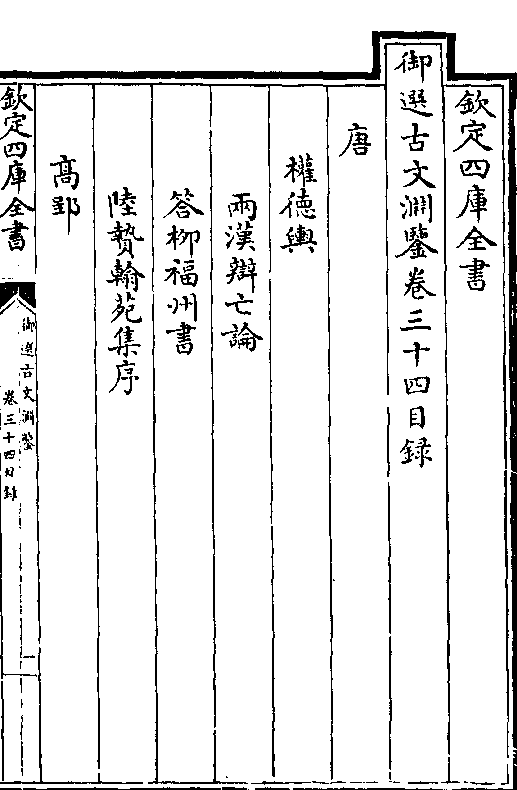 欽定四庫全書
御選古文淵鑒卷三十四目録
唐
權德輿
兩漢辯亡論
答柳福州書
陸贄翰苑集序
高郢
欽定四庫全書
御選古文淵鑒
卷三十四目録
一